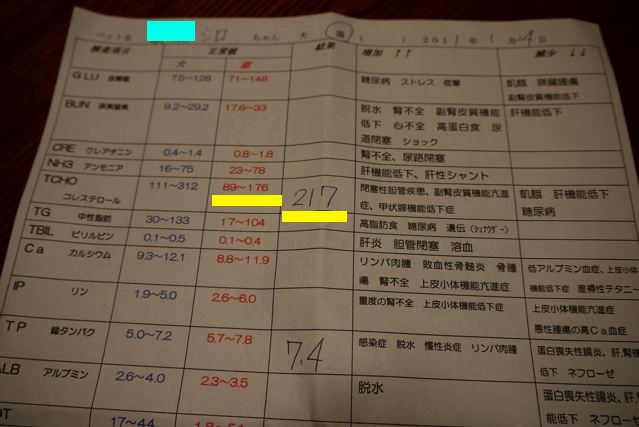 ペット名 シロ ちゃん 犬 猫 ( ) 2011年 1月24日
検査項目 正常値 結果 増加 ↑↑ 減少 ↓↓
犬 猫
GLU 血糖値 75~128 71~148 糖尿病 ストレス 痙攣 飢餓 膵臓腫瘍
副腎皮質機能低下
BUN 尿素窒素 9.2~29.2 17.6~33 脱水 腎不全 副腎皮質機能 肝機能低下
低下 心不全 高蛋白食 尿
道閉塞 ショック
CRE クレアチニン 0.4~1.4 0.8~1.8 腎不全、尿路閉塞
NH3 アンモニア 16~75 23~78 肝機能低下、肝性シャント
TCHO 111~312 89~176 217 閉塞性胆管疾患、副腎皮質機能亢進 飢餓 肝機能低下
コレステロール 症、甲状腺機能低下症 糖尿病
TG 中性脂肪 30~133 17~104 高脂肪食 糖尿病 遺伝(シュナウザー)
TBIL ビリルビン 0.1~0.5 0.1~0.4 肝炎 胆管閉塞 溶血
Ca カルシウム 9.3~12.1 8.8~11.9 リンパ肉腫 敗血性骨髄炎 骨腫 低アルブミン血症、上皮小体
瘍 腎不全 上皮小体機能亢進 機能低下症 産褥性テタニー
IP リン 1.9~5.0 2.6~6.0 重度の腎不全 上皮小体機能低下症 上皮小体機能亢進症
悪性腫瘍の高Ca血症
TP 総タンパク 5.0~7.2 5.7~7.8 7.4 感染症 脱水 慢性炎症 リンパ肉腫 蛋白喪失性腸炎、肝,腎機
低下 ネフローゼ
ALB アルブミン 2.6~4.0 2.3~3.5 脱水 蛋白喪失性腸炎、肝,
能低下 ネフロー
OT 17~44